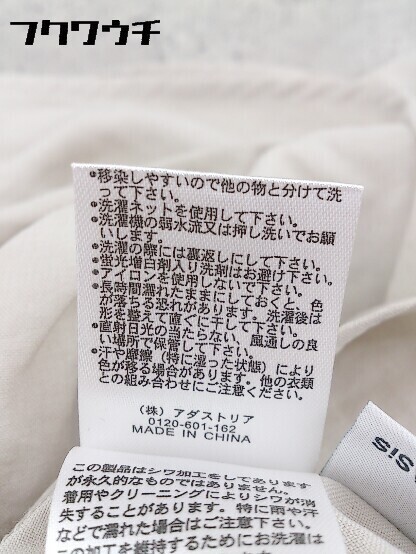 フクワウチ
●移染しやすいので他の物と分けて洗
って下さい。
●洗濯ネットを使用して下さい。
●洗濯機の弱水流又は押し洗いでお願
いします。
●洗濯の際には裏返しにして下さい。
●蛍光増白剤入り洗剤はお避け下さい。
●アイロンを使用しないで下さい。
●長時間濡れたままにしておくと、色
が落ちる恐れがあります。洗濯後は
形を整えて直ぐに干して下さい。
●直射日光の当たらない、風通しの良
い場所で保管して下さい。
●汗や摩擦（特に湿った状態）により
色が移る場合があります。他の衣類
との組み合わせにご注意ください。
（株）アダストリア
0120-601-162
MADE IN CHINA
この製品はシワ加工をしてあります
が永久的なものではありません。
着用やクリーニングによりシワが消
失することがあります。特に雨や汗
などで濡れた場合はご注意下さい。
この加工を維持するためにお洗濯は